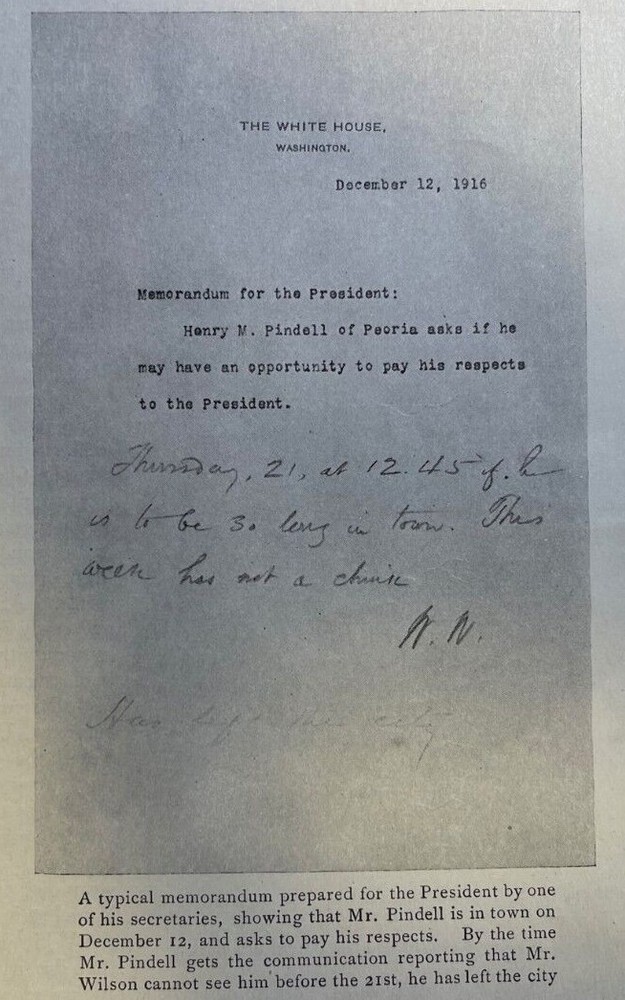 THE WHITE HOUSE,
WASHINGTON.
December 12, 1916
Memorandum for the President:
Henry M. Pindell of Peoria asks if he
may have an opportunity to pay his respects
to the President.
Thursday, 21, at 12.45 if he
is to be so long in town. This
week has not a chink
W. W.
Has left the city
A typical memorandum prepared for the President by one
of his secretaries, showing that Mr. Pindell is in town on
December 12, and asks to pay his respects. By the time
Mr. Pindell gets the communication reporting that Mr.
Wilson cannot see him before the 21st, he has left the city